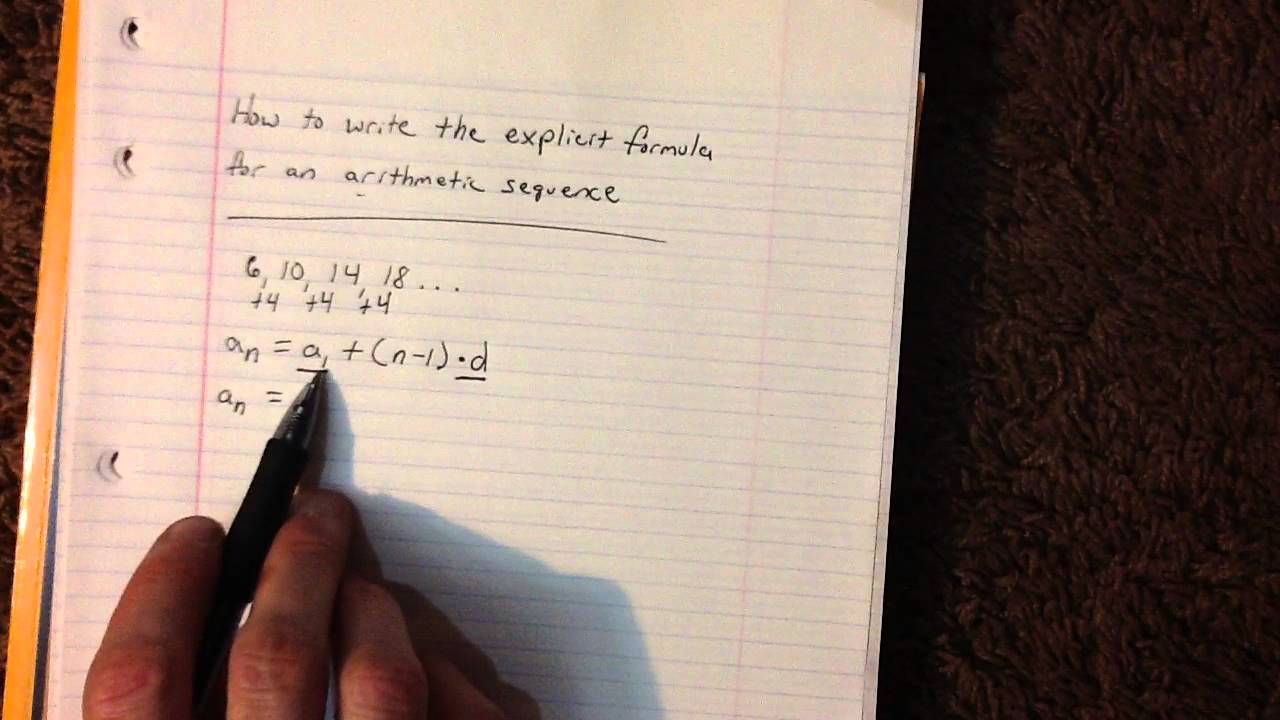 How to write the explicit formula
for an arithmetic sequence
6, 10, 14, 18...
+4 +4 +4
aₙ = a₁ + (n-1) · d
aₙ =